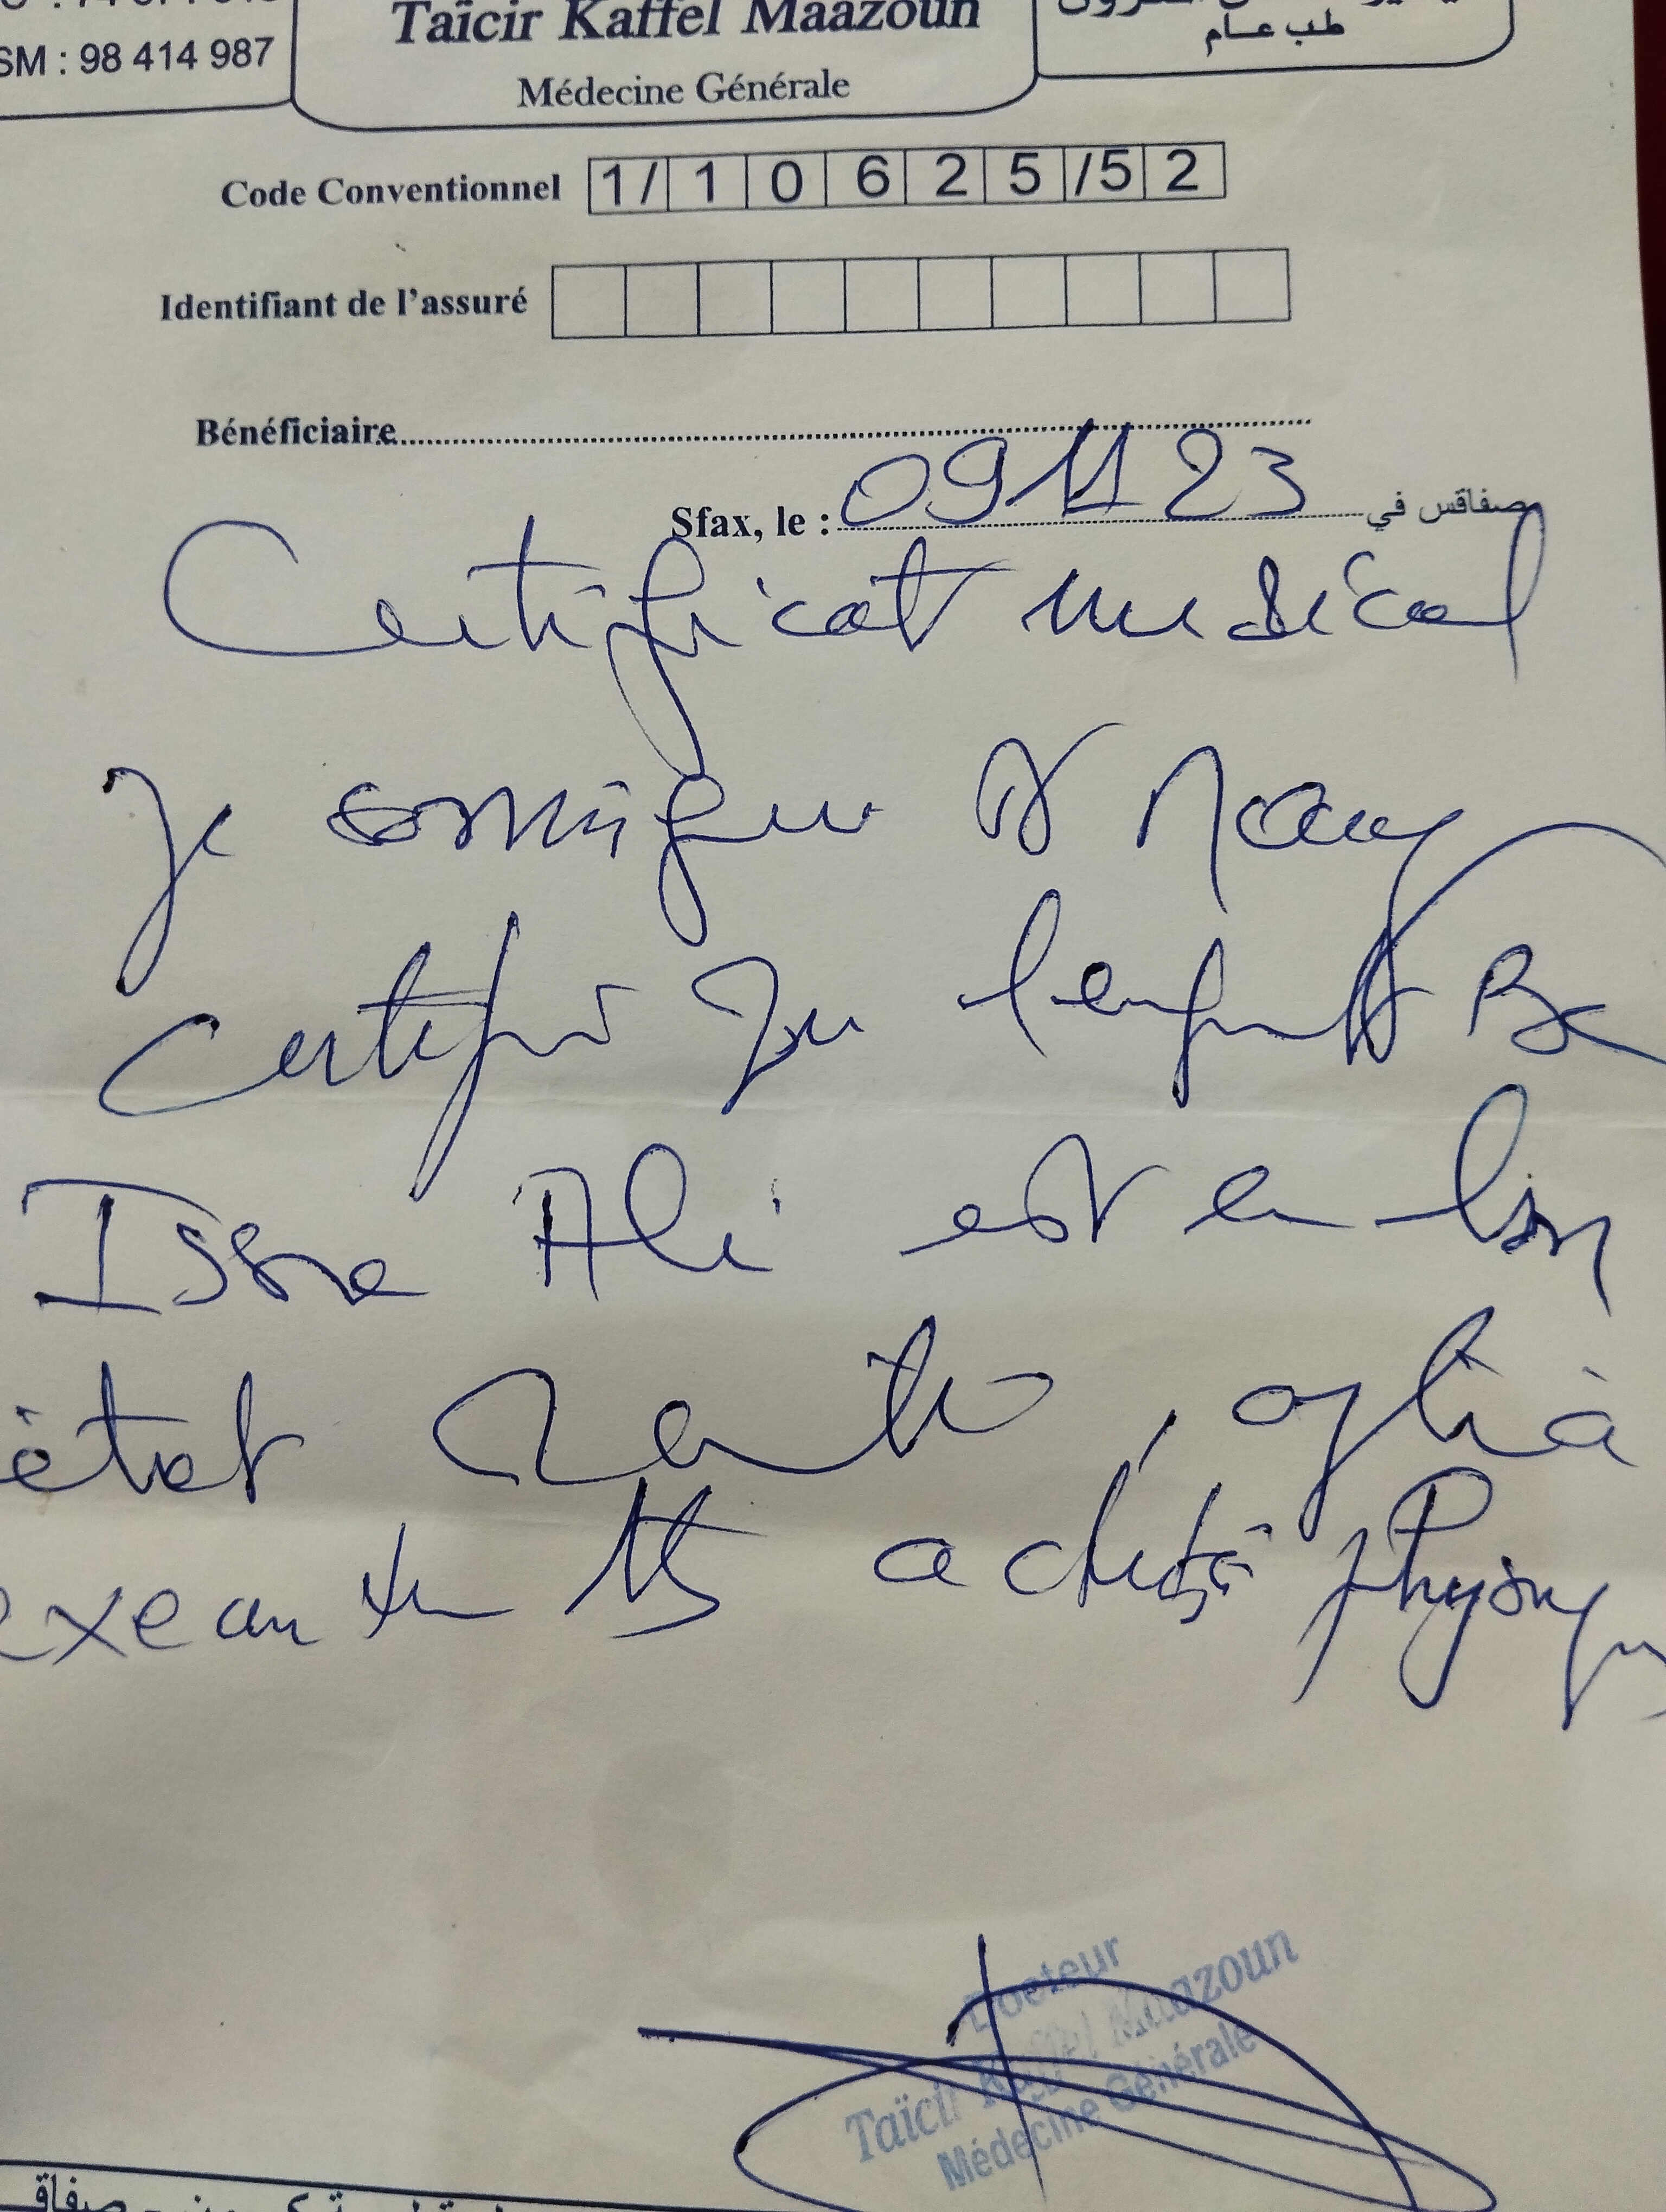 SM : 98 414 987
Taïcir Kaffel Maazoun
Médecine Générale
طب عام
Code Conventionnel 1/10625/52
Identifiant de l'assuré
Bénéficiaire
Sfax, le : 09 11 23 صفاقس في
Certificat medical
Je soussigné Dr
certifie que l'enfant Be
Issa Ali est en bon
état santé, apte à
exercer activité physique
Docteur
Taïcir Kaffel Maazoun
Médecine Générale